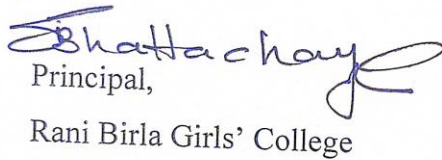 SBhattacharya
Principal,
Rani Birla Girls' College